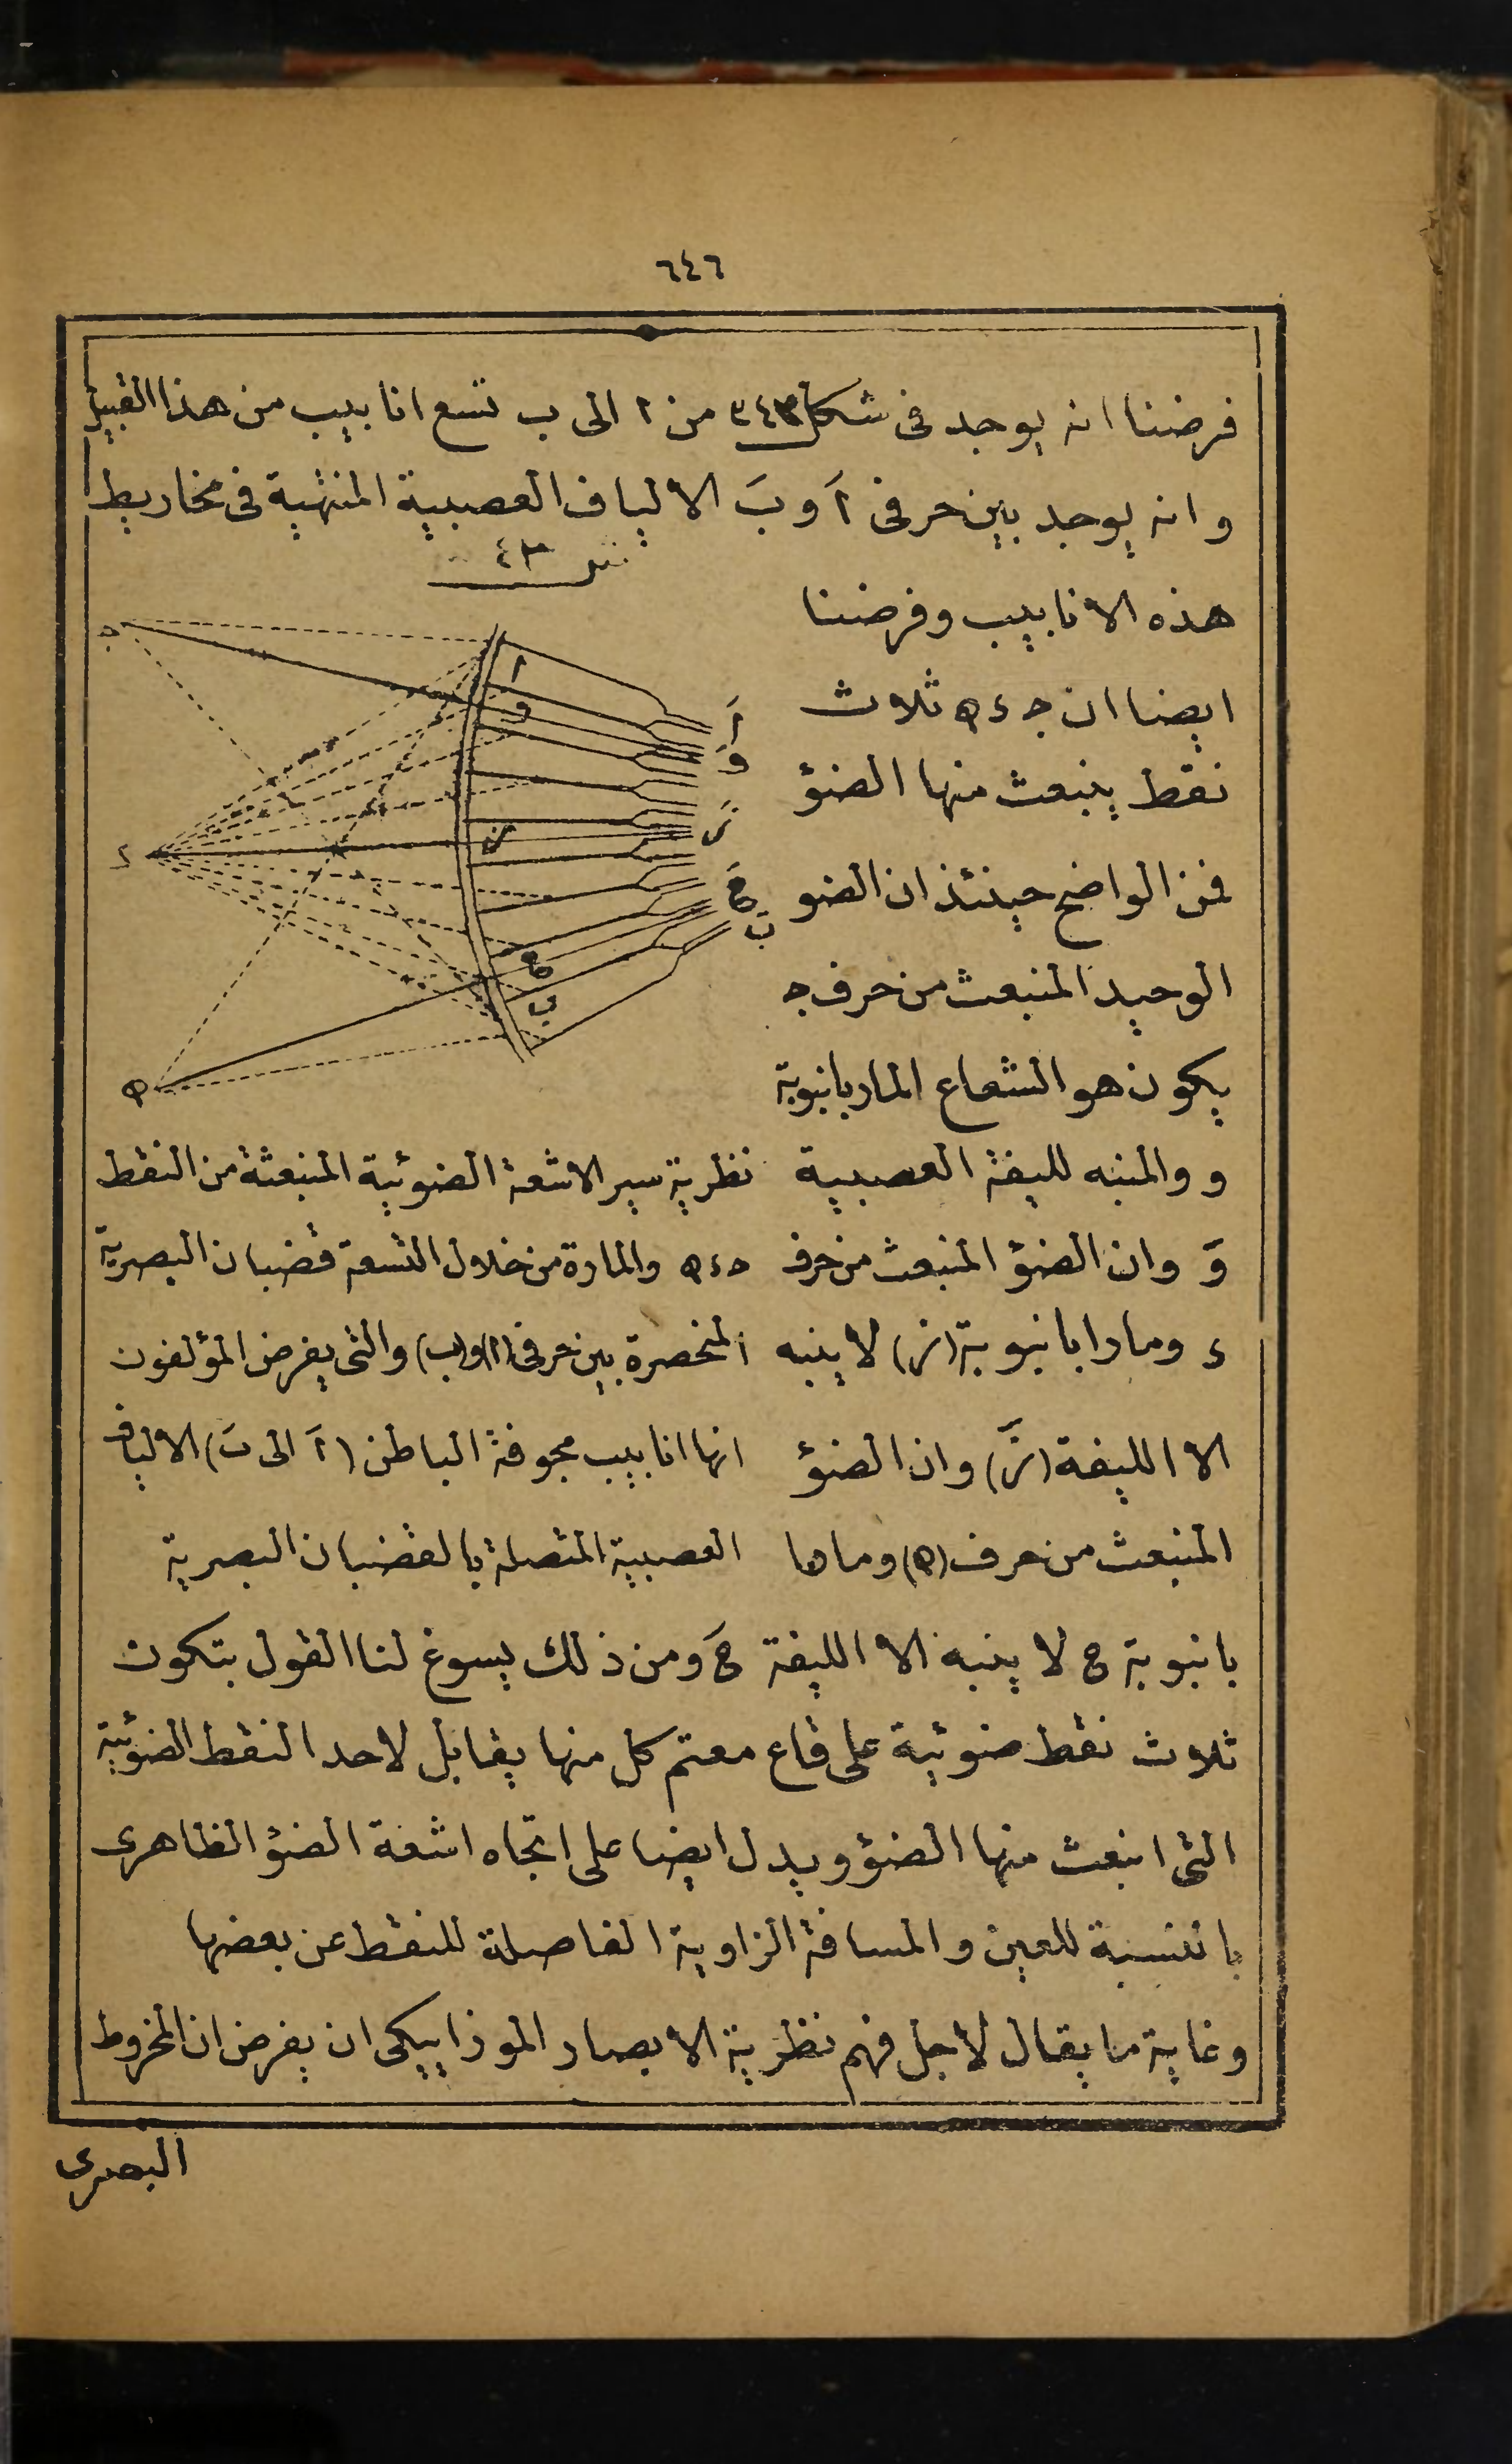 ٦٤٦
فرضنا انه يوجد فى شكل ٣٤٣ من ا الى ب تسع انابيب من هذا القبيل
وانه يوجد بين حرفى اَ وبَ الالياف العصبية المنتهية فى مخاريط
هذه الانابيب وفرضنا
ايضا ان جـ ء هـ ثلاث
نقط ينبعث منها الضؤ
فمن الواضح حينئذ ان الضو
الوحيد المنبعث من حرف جـ
يكون هو الشعاع المار بانبوبة
و والمنبه لليفة العصبية
وَ وان الضؤ المنبعث من حرف
ء ومارا بانبوبة (ز) لا ينبه
الا الليفة (زَ) وان الضؤ
المنبعث من حرف (هـ) ومارا
شكل ٣٤٣
جـ
ء
هـ
ا
و
ز
ح
ب
اَ
وَ
زَ
حَ
بَ
نظرية سير الاشعة الضوئية المنبعثة من النقط
جـ ء هـ والمارة من خلال التسعة قضبان البصرية
المنحصرة بين حرفى (ا) و(ب) والتى يفرض المؤلفون
انها انابيب مجوفة الباطن (اَ الى بَ) الالياف
العصبية المتصلة بالقضبان البصرية
بانبوبة ح لا ينبه الا الليفة حَ ومن ذلك يسوغ لنا القول بتكون
ثلاث نقط ضوئية على قاع معتم كل منها يقابل لاحد النقط الضوئية
التى انبعث منها الضؤ ويدل ايضا على اتجاه اشعة الضؤ الظاهرى
بالنسبة للعين والمسافة الزاوية الفاصلة للنقط عن بعضها
وغاية ما يقال لاجل فهم نظرية الابصار الموزاييكى ان يفرض ان المخروط
البصرى